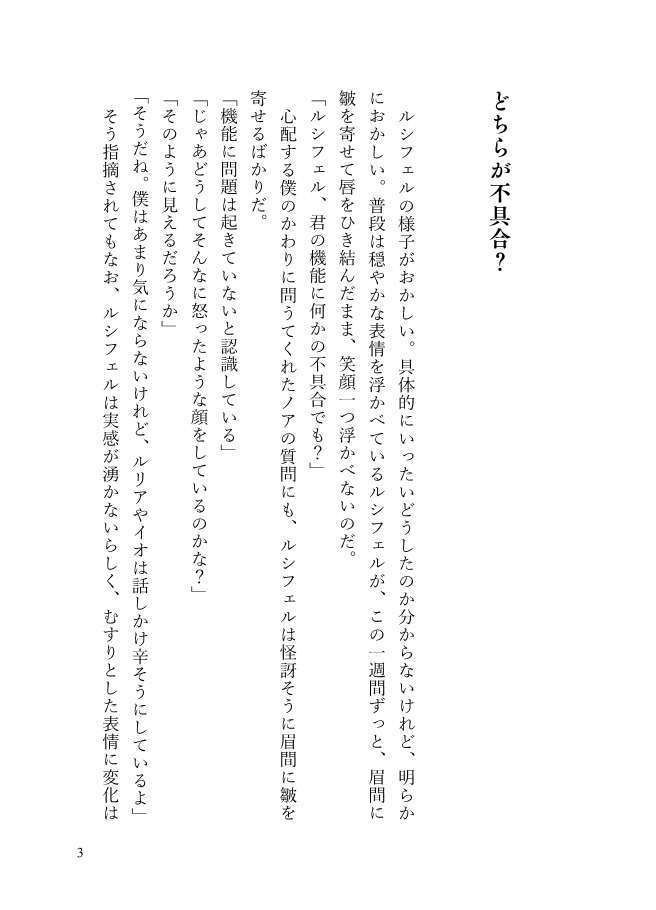 どちらが不具合？
ルシフェルの様子がおかしい。具体的にいったいどうしたのか分からないけれど、明らか
におかしい。普段は穏やかな表情を浮かべているルシフェルが、この一週間ずっと、眉間に
皺を寄せて唇をひき結んだまま、笑顔一つ浮かべないのだ。
「ルシフェル、君の機能に何かの不具合でも？」
心配する僕のかわりに問うてくれたノアの質問にも、ルシフェルは怪訝そうに眉間に皺を
寄せるばかりだ。
「機能に問題は起きていないと認識している」
「じゃあどうしてそんなに怒ったような顔をしているのかな？」
「そのように見えるだろうか」
「そうだね。僕はあまり気にならないけれど、ルリアやイオは話しかけ辛そうにしているよ」
そう指摘されてもなお、ルシフェルは実感が湧かないらしく、むすりとした表情に変化は
3